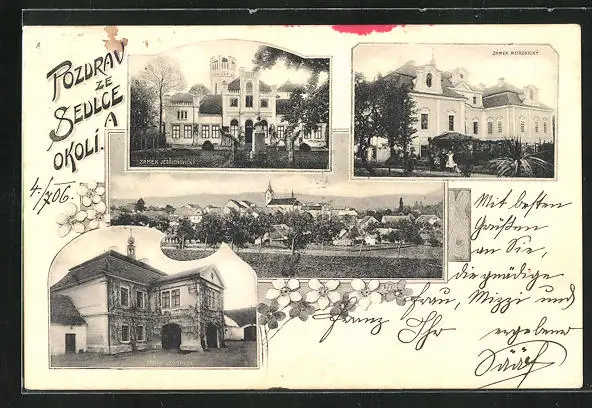 POZDRAV
ZE
SEDLCE
A
OKOLÍ.
4./7 06.
ZÁMEK JETŘICHOVICKÝ
ZÁMEK MITROVICKÝ
Mit besten
Grüßen
an Sie,
die gnädige
Frau, Mizzi und
Franz Ihr ergebener